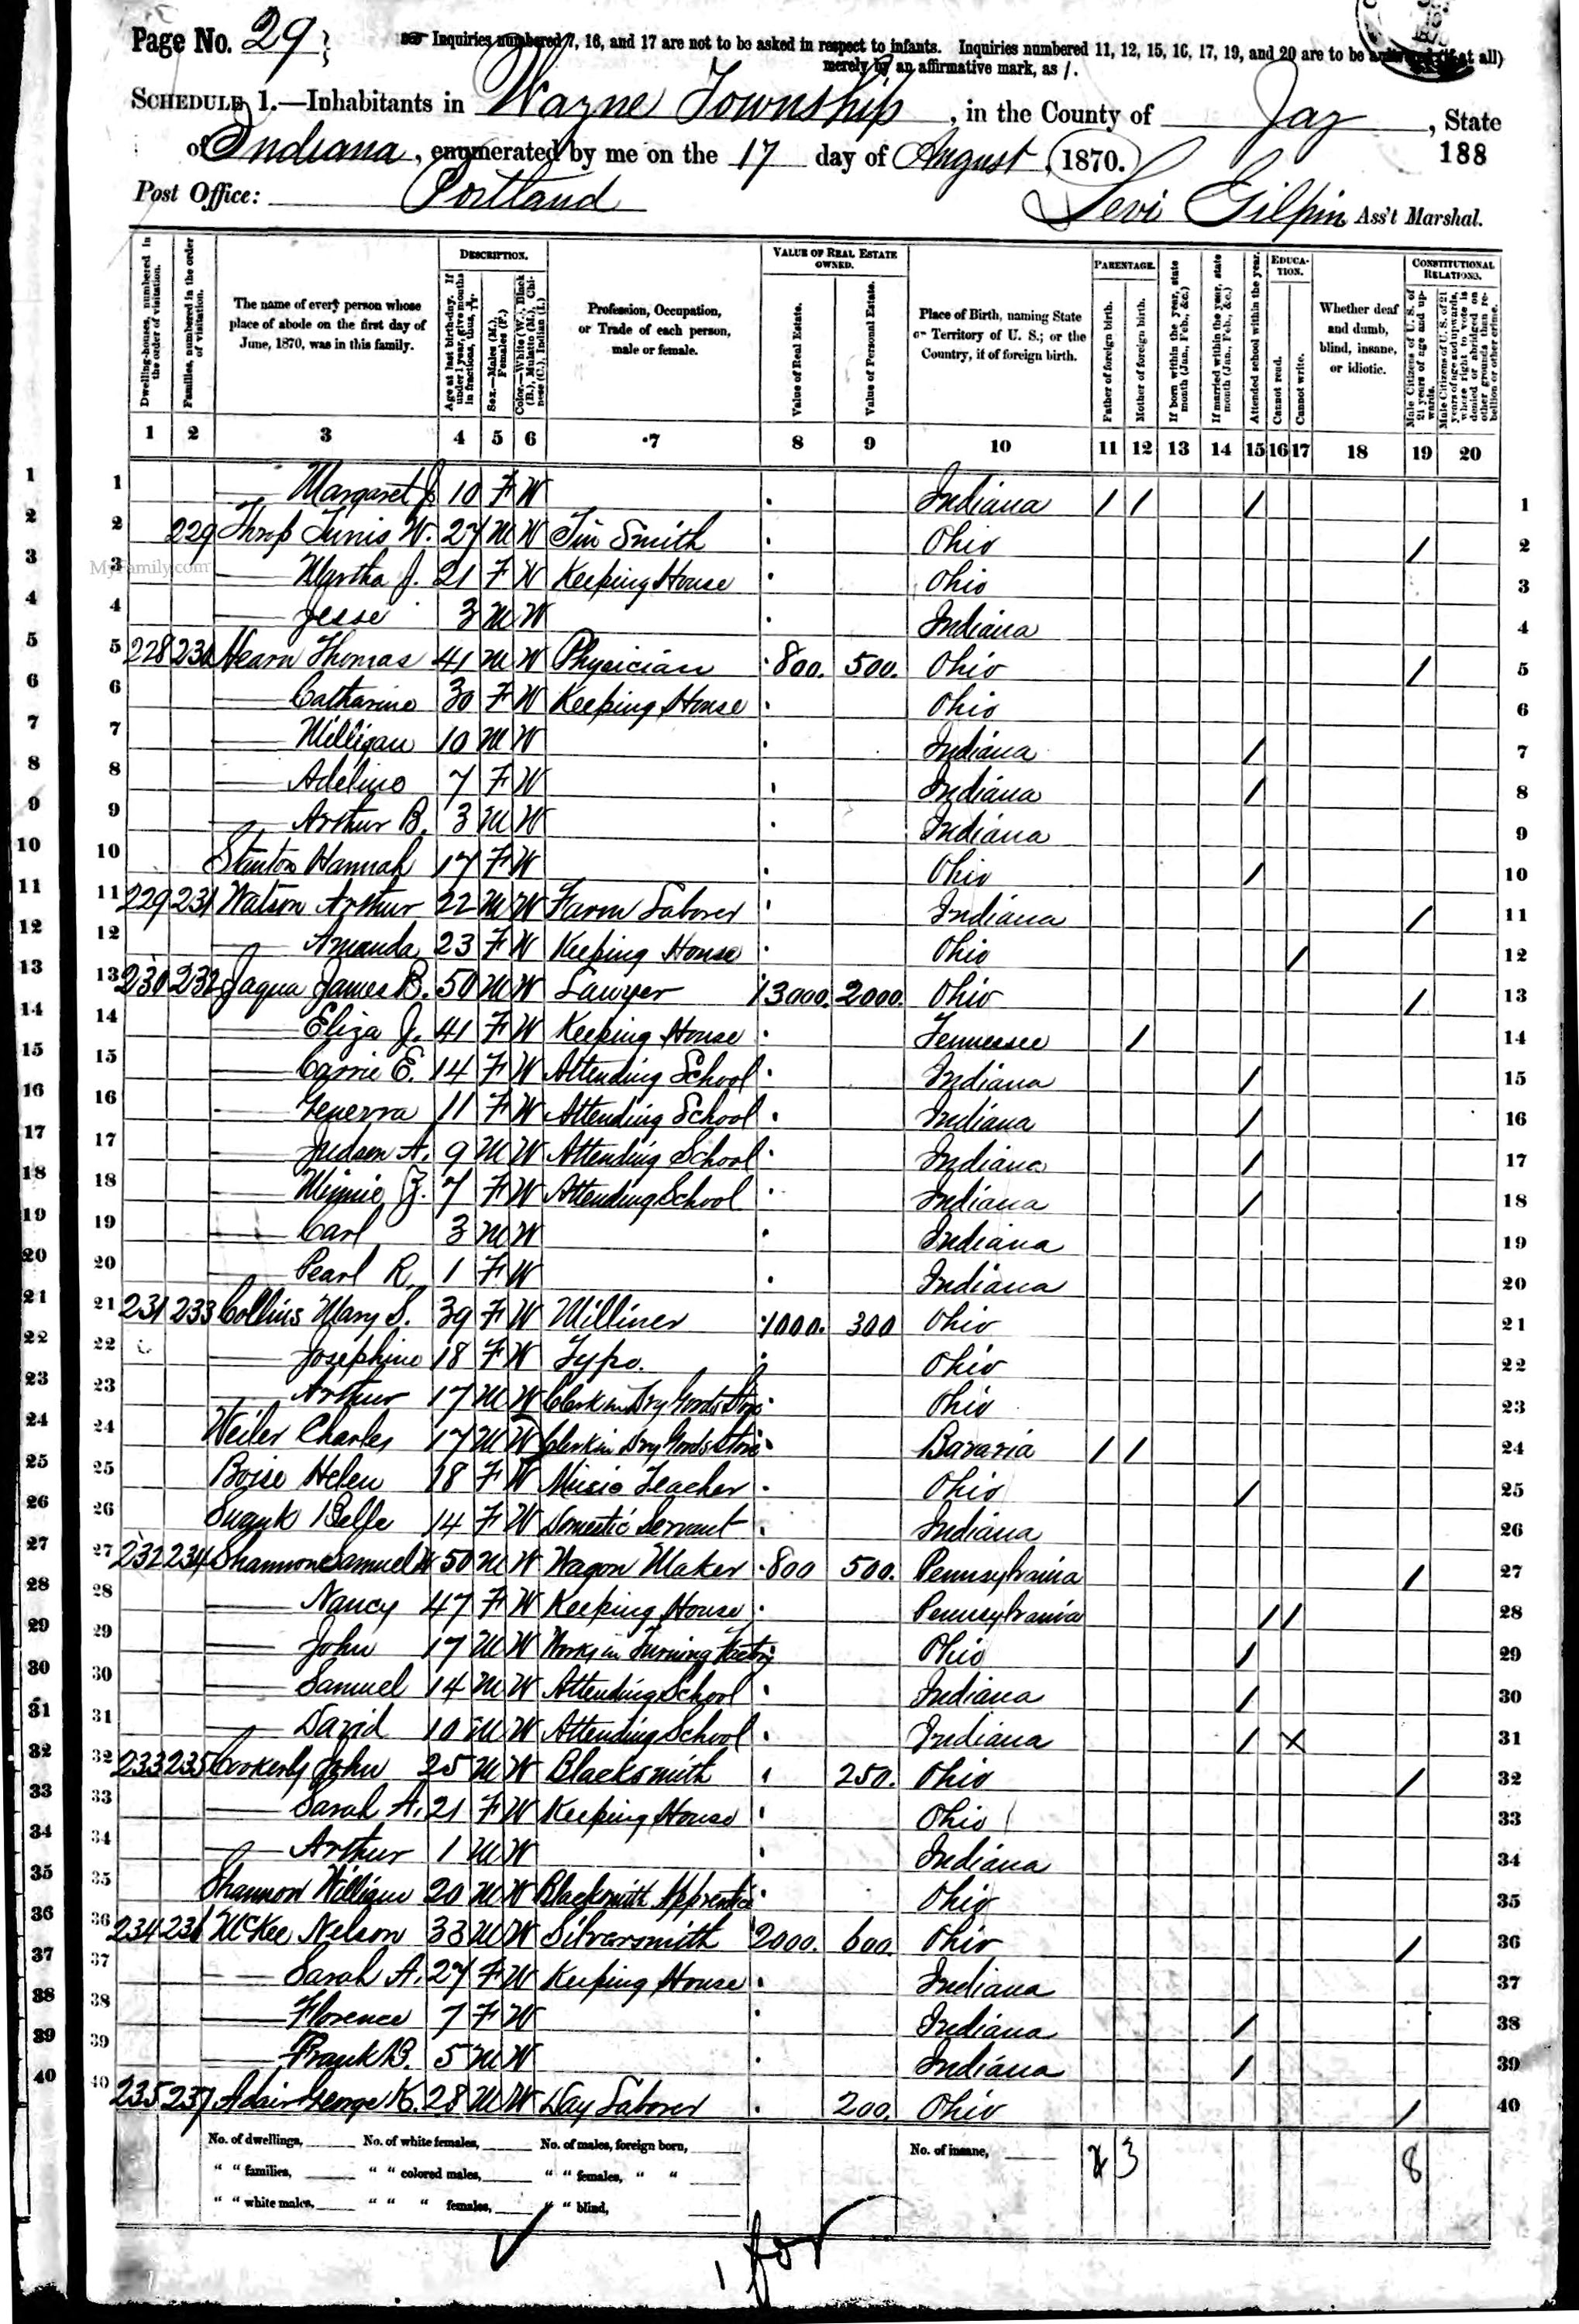 Page No. 29
Inquiries numbered 7, 16, and 17 are not to be asked in respect to infants. Inquiries numbered 11, 12, 15, 16, 17, 19, and 20 are to be answered (if at all)
merely by an affirmative mark, as /.
SCHEDULE 1.—Inhabitants in Wayne Township, in the County of Jay, State
of Indiana, enumerated by me on the 17 day of August, 1870.
188
Post Office: Portland
Levi Gilpin Ass't Marshal.
DESCRIPTION.
VALUE OF REAL ESTATE OWNED.
PARENTAGE.
EDUCATION.
CONSTITUTIONAL RELATIONS.
Dwelling-houses, numbered in the order of visitation.
Families, numbered in the order of visitation.
The name of every person whose place of abode on the first day of June, 1870, was in this family.
Age at last birth-day. If under 1 year, give months in fractions, thus,
Sex.—Males (M.), Females (F.)
Color.—White (W.), Black (B.), Mulatto (M.), Chinese (C.), Indian (I.)
Profession, Occupation, or Trade of each person, male or female.
Value of Real Estate.
Value of Personal Estate.
Place of Birth, naming State or Territory of U. S.; or the Country, if of foreign birth.
Father of foreign birth.
Mother of foreign birth.
If born within the year, state month (Jan., Feb., &c.)
If married within the year, state month (Jan., Feb., &c.)
Attended school within the year.
Cannot read.
Cannot write.
Whether deaf and dumb, blind, insane, or idiotic.
Male Citizens of U. S. of 21 years of age and upwards.
Male Citizens of U. S. of 21 years of age and upwards, whose right to vote is denied or abridged on other grounds than rebellion or other crime.
1 2 3 4 5 6 7 8 9 10 11 12 13 14 15 16 17 18 19 20
1 1 — Margaret J. 10 F W Indiana / / / 1
2 2 229 Throp Tunis W. 27 M W Tin Smith Ohio / 2
MyFamily.com
3 3 — Martha J. 21 F W Keeping House Ohio 3
4 4 — Jesse 3 M W Indiana 4
5 5 228 230 Hearn Thomas 41 M W Physician 800. 500. Ohio / 5
6 6 — Catharine 30 F W Keeping House Ohio 6
7 7 — Milligan 10 M W Indiana / 7
8 8 — Adeline 7 F W Indiana / 8
9 9 — Arthur B. 3 M W Indiana 9
10 10 Stanton Hannah 17 F W Ohio / 10
11 11 229 231 Watson Arthur 22 M W Farm Laborer Indiana / 11
12 12 — Amanda 23 F W Keeping House Ohio / 12
13 13 230 232 Jaqua James B. 50 M W Lawyer 13000. 2000. Ohio / 13
14 14 — Eliza J. 41 F W Keeping House Tennessee / 14
15 15 — Carrie E. 14 F W Attending School Indiana / 15
16 16 — Generra 11 F W Attending School Indiana / 16
17 17 — Judson A. 9 M W Attending School Indiana / 17
18 18 — Minnie Z. 7 F W Attending School Indiana / 18
19 19 — Carl 3 M W Indiana 19
20 20 — Pearl R. 1 F W Indiana 20
21 21 231 233 Collins Mary S. 39 F W Milliner 1000. 300 Ohio 21
22 22 — Josephine 18 F W Typo. Ohio 22
23 23 — Arthur 17 M W Clerk in Dry Goods Store Ohio 23
24 24 Weiler Charles 17 M W Clerk in Dry Goods Store Bavaria / / 24
25 25 Boise Helen 18 F W Music Teacher Ohio / 25
26 26 Swank Belle 14 F W Domestic Servant Indiana 26
27 27 232 234 Shannon Samuel W 50 M W Wagon Maker 800 500. Pennsylvania / 27
28 28 — Nancy 47 F W Keeping House Pennsylvania / / 28
29 29 — John 17 M W Works in Turning Factory Ohio / 29
30 30 — Samuel 14 M W Attending School Indiana / 30
31 31 — David 10 M W Attending School Indiana / X 31
32 32 233 235 Cookerly John 25 M W Blacksmith 250. Ohio / 32
33 33 — Sarah A. 21 F W Keeping House Ohio 33
34 34 — Arthur 1 M W Indiana 34
35 35 Shannon William 20 M W Blacksmith Apprentice Ohio 35
36 36 234 236 McKee Nelson 33 M W Silversmith 2000. 600. Ohio / 36
37 37 — Sarah A. 27 F W Keeping House Indiana 37
38 38 — Florence 7 F W Indiana / 38
39 39 — Frank B. 5 M W Indiana / 39
40 40 235 237 Adair George K. 28 M W Day Laborer 200. Ohio / 40
No. of dwellings, No. of white females, No. of males, foreign born, No. of insane, 3 8
" " families, " " colored males, " " females, " "
" " white males, " " " females, " " blind,